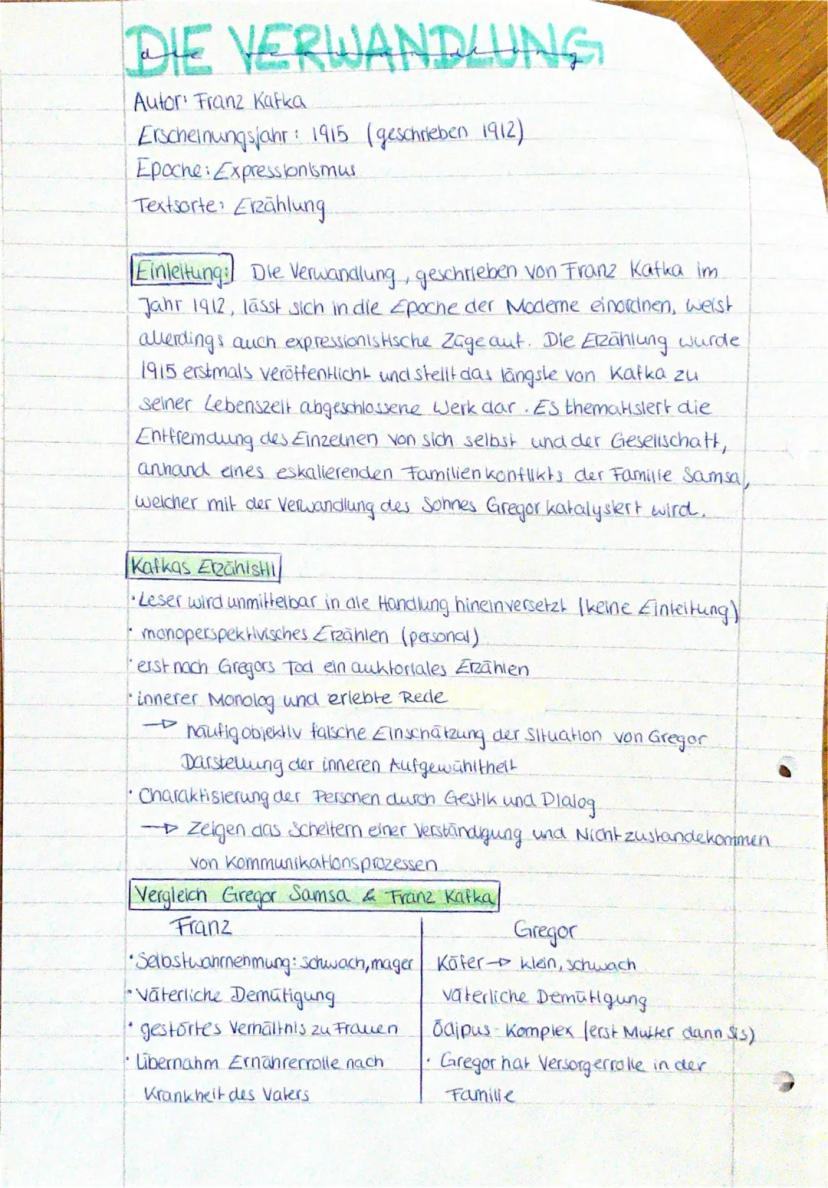 DIE VERWANDLUNG
die verwandlung
Autor: Franz Kafka
Erscheinungsjahr: 1915 (geschrieben 1912)
Epoche: Expressionismus
Textsorte: Erzählung
Einleitung: Die Verwandlung, geschrieben von Franz Kafka im
Jahr 1912, lässt sich in die Epoche der Moderne einordnen, weist
allerdings auch expressionistische Züge auf. Die Erzählung wurde
1915 erstmals veröffentlicht und stellt das längste von Kafka zu
seiner Lebenszeit abgeschlossene Werk dar. Es thematisiert die
Entfremdung des Einzelnen von sich selbst und der Gesellschaft,
anhand eines eskalierenden Familienkonflikts der Familie Samsa,
welcher mit der Verwandlung des Sohnes Gregor katalysiert wird.
Kafkas Erzählstil
• Leser wird unmittelbar in die Handlung hineinversetzt (keine Einleitung)
• monoperspektivisches Erzählen (personal)
• erst nach Gregors Tod ein auktoriales Erzählen
• innerer Monolog und erlebte Rede
→ häufig objektiv falsche Einschätzung der Situation von Gregor
Darstellung der inneren Aufgewühltheit
• Charaktisierung der Personen durch Gestik und Dialog
→ Zeigen das Scheitern einer Verständigung und Nichtzustandekommen
von Kommunikationsprozessen
Vergleich Gregor Samsa & Franz Kafka
Franz
• Selbstwahrnehmung: schwach, mager
• Väterliche Demütigung
• gestörtes Verhältnis zu Frauen
• Übernahm Ernährerrolle nach
Krankheit des Vaters
Gregor
Käfer → klein, schwach
väterliche Demütigung
Ödipus-Komplex (erst Mutter dann Sis)
• Gregor hat Versorgerrolle in der
Familie